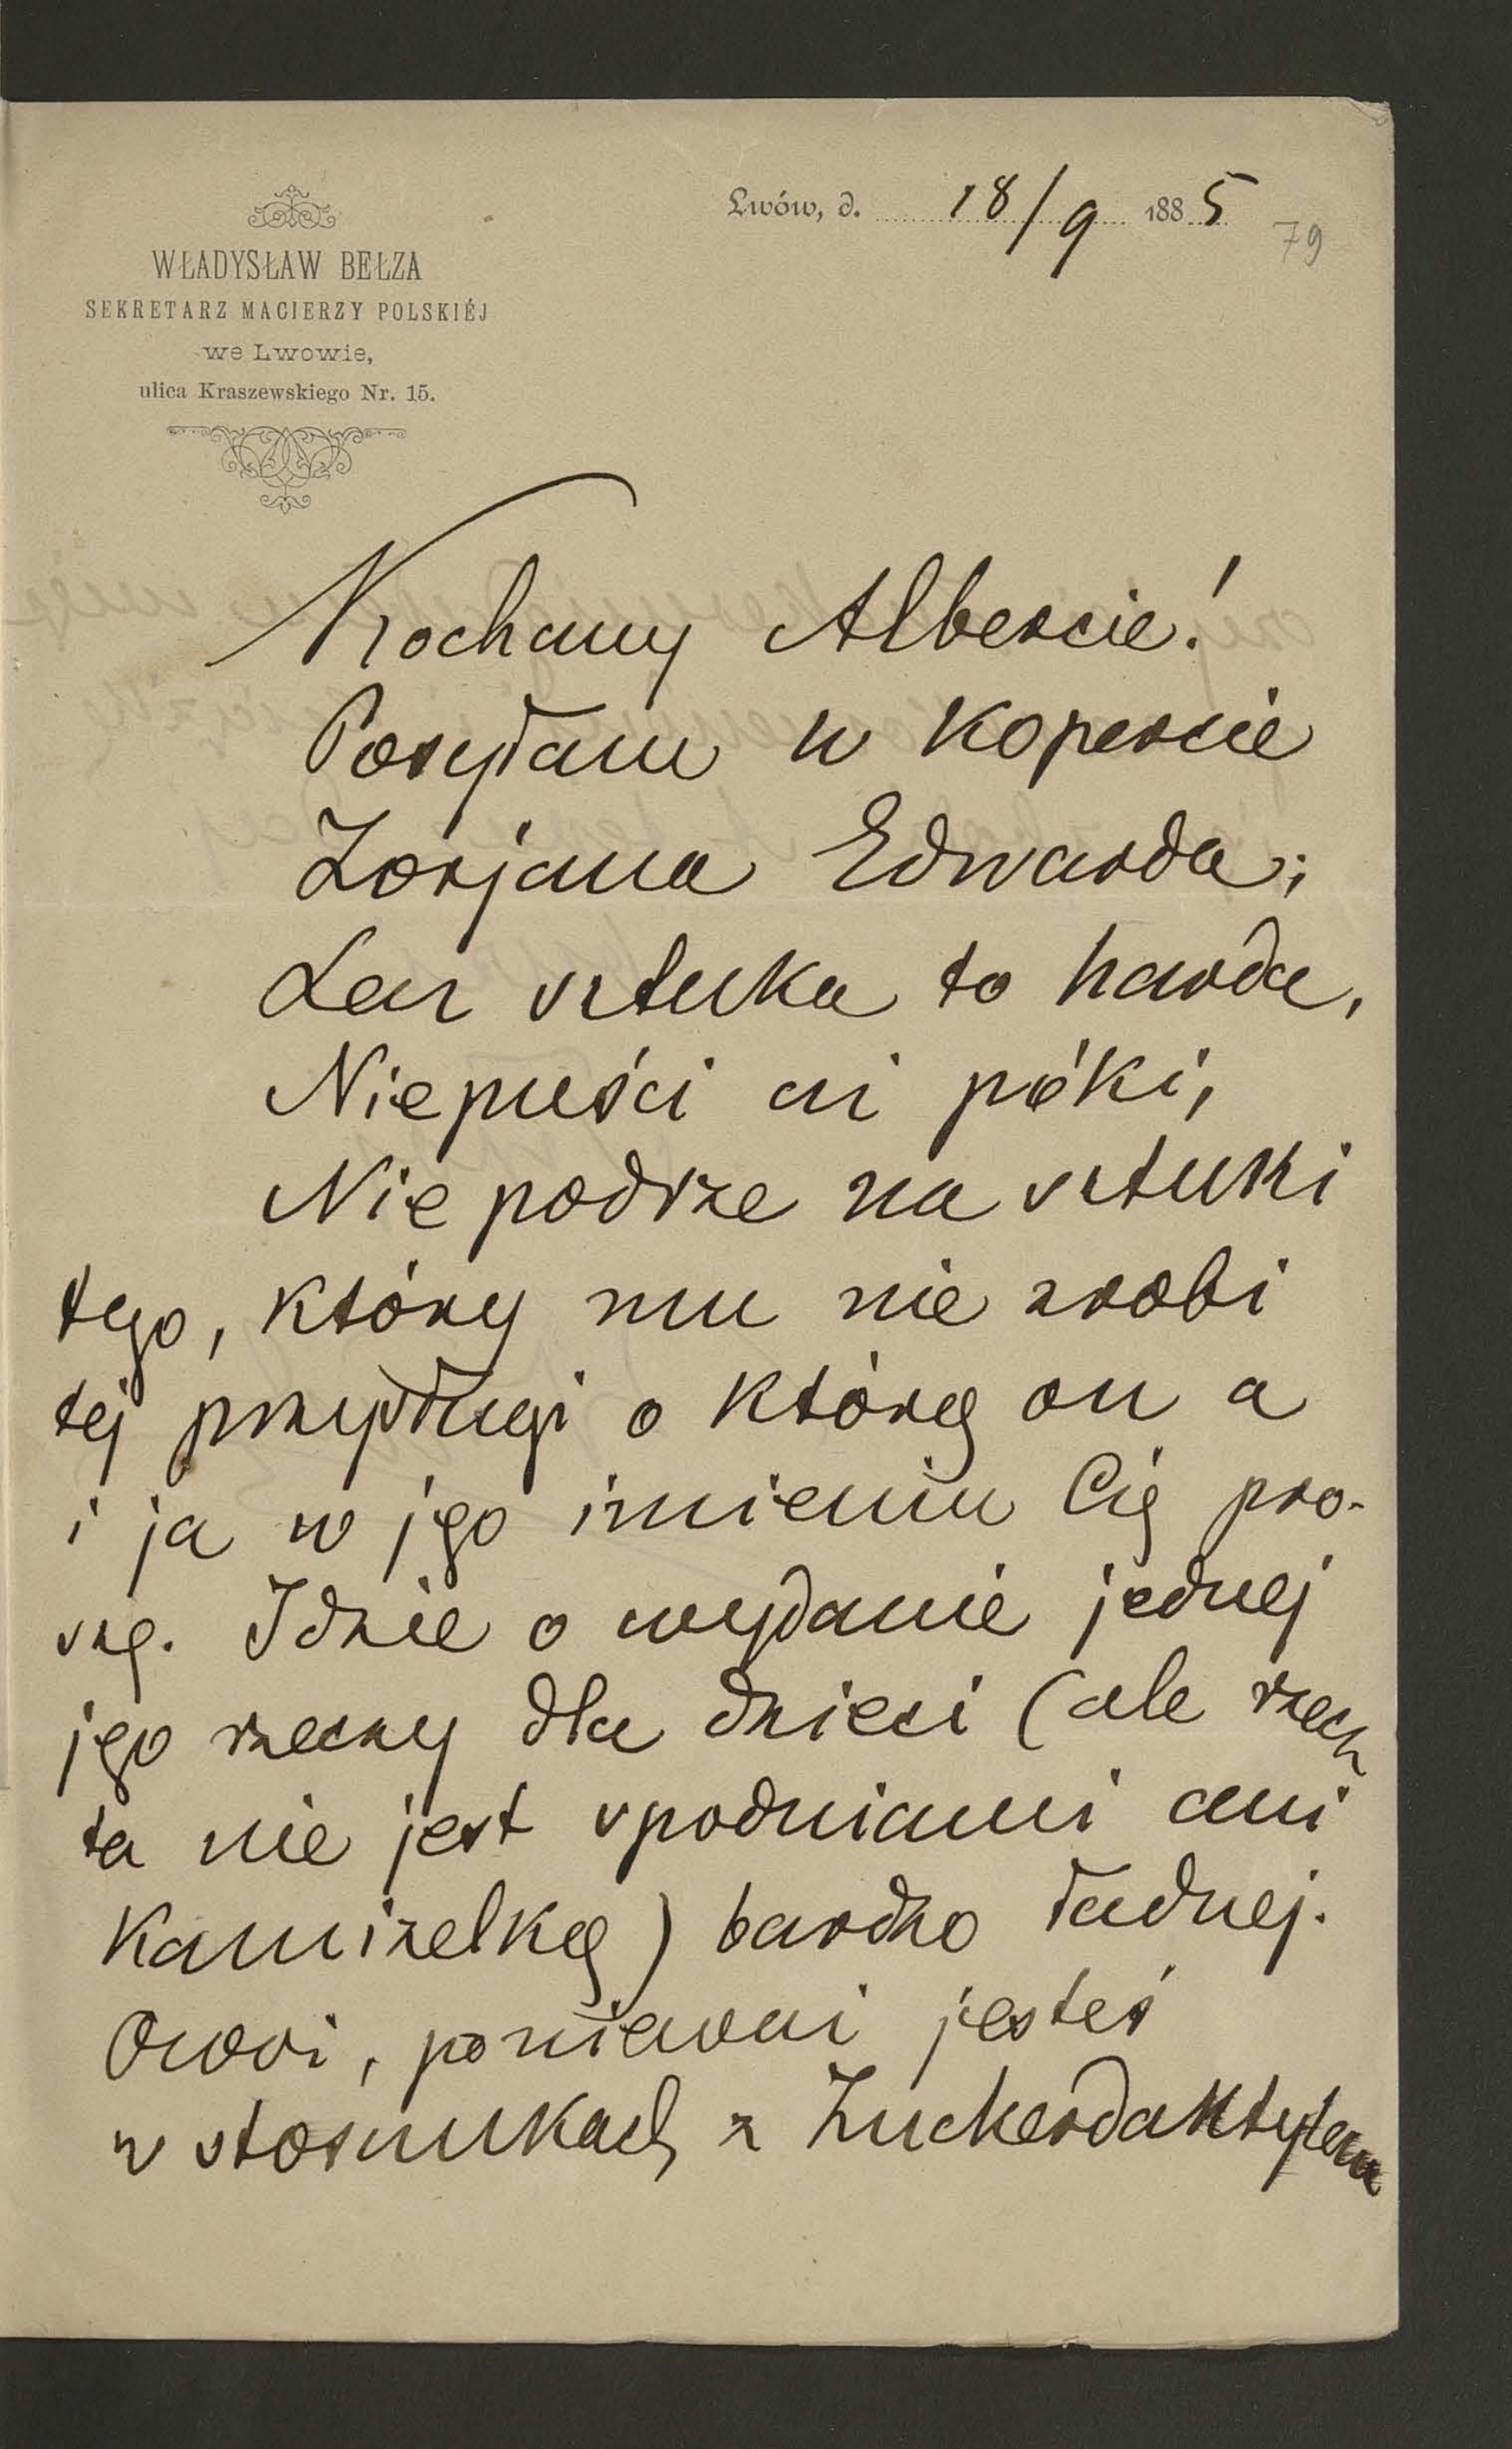 Lwów, d. 18/9 1885
79
WŁADYSŁAW BEŁZA
SEKRETARZ MACIERZY POLSKIÉJ
we Lwowie,
ulica Kraszewskiego Nr. 15.
Kochany Albercie!
Posyłam w Kopercie
Zorjana Edwarda;
Lecz sztuka to harda,
Niepuści ci póki,
Nie podrze na sztuki
tego, który mu nie zrobi
tej przysługi o którą on a
i ja w jego imieniu Cię pro-
szę. Idzie o wydanie jednej
jego rzeczy dla dzieci (ale rzecz
ta nie jest spodniami ani
Kamizelką) bardzo ładnej.
jesteś
w stosunkach z Zuckerdaktylem